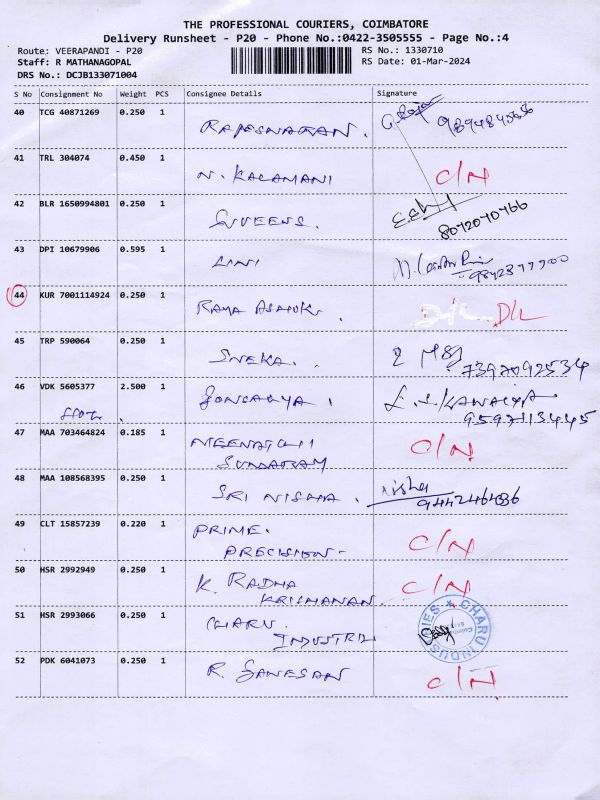 THE PROFESSIONAL COURIERS, COIMBATORE
Delivery Runsheet - P20 - Phone No.:0422-3505555 - Page No.:4
Route: VEERAPANDI - P20 RS No.: 1330710
Staff: R MATHANAGOPAL RS Date: 01-Mar-2024
DRS No.: DCJB133071004
S No Consignment No Weight PCS Consignee Details Signature
40 TCG 40871269 0.250 1
41 TRL 304074 0.450 1 N. KALAMANI C/N
42 BLR 1650994801 0.250 1 8072070766
43 DPI 10679906 0.595 1 LINI
44 KUR 7001114924 0.250 1 RAMA ASHOK. D/L
45 TRP 590064 0.250 1 SNEKA. 7397092534
46 VDK 5605377 2.500 1 9597113445
47 MAA 703464824 0.185 1 MEENATCHI C/N
SUNDARAM
48 MAA 108568395 0.250 1 SRI NISHA. Nisha
9442464836
49 CLT 15857239 0.220 1 PRIME. C/N
PRECISION-
50 HSR 2992949 0.250 1 K. RADHA C/N
KRISHANAN.
51 HSR 2993066 0.250 1 CHARU CHARU INDUSTRIES
52 PDK 6041073 0.250 1 R. GANESAN C/N